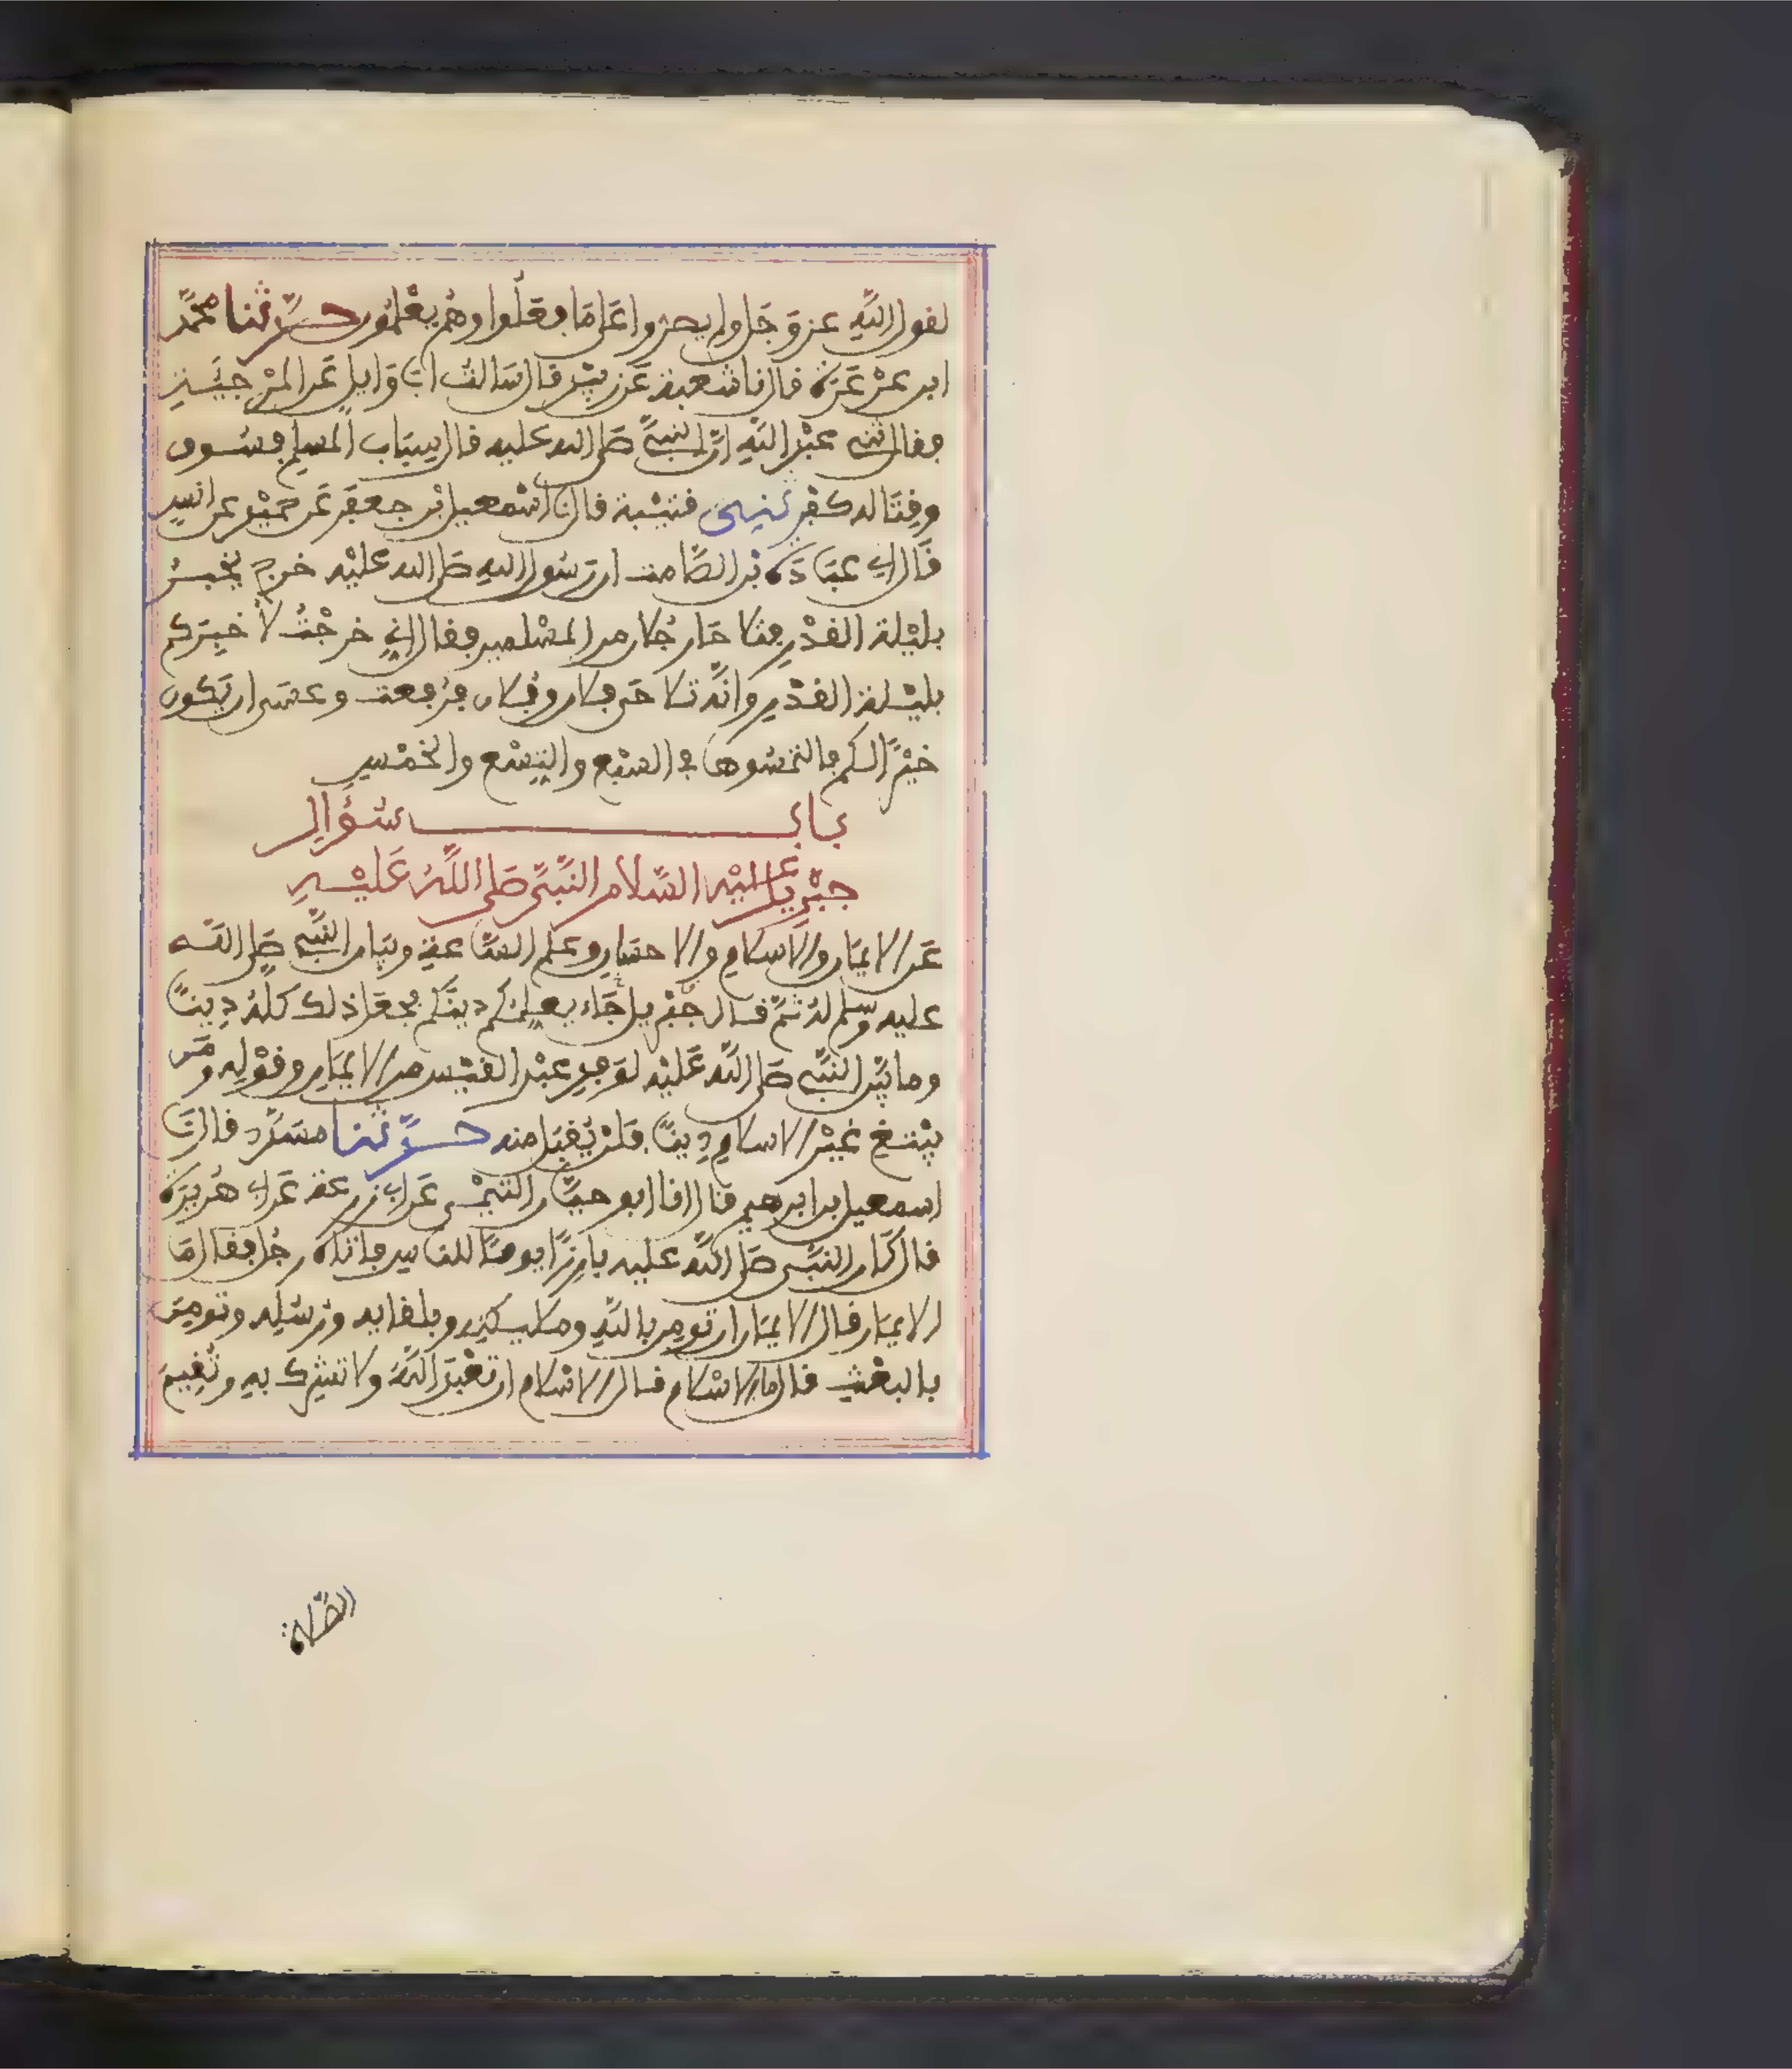 لقول الله عز وجل ولم يصروا على ما فعلوا وهم يعلمون حدثنا محمد
ابن عرعرة قال نا شعبة عن زبيد قال سالت ابا وايل عن المرجئة
فقال ثني عبد الله ان النبي صلى الله عليه قال سباب المسلم فسوق
وقتاله كفر ثني قتيبة قال نا اسمعيل بن جعفر عن حميد عن انس
قال ني عبادة بن الصامت ان رسول الله صلى الله عليه خرج يخبر
بليلة القدر فتلاحا رجلان من المسلمين فقال اني خرجت لاخبركم
بليلة القدر وانه تلاحى فلان وفلان فرفعت وعسى ان يكون
خيرا لكم فالتمسوها في السبع والتسع والخمس
باب سؤال
جبريل عليه السلام النبي صلى الله عليه
عن الايمان والاسلام والاحسان وعلم الساعة وبيان النبي صلى الله
عليه وسلم له ثم قال جبريل جاء يعلمكم دينكم فجعل ذلك كله دينا
وما بين النبي صلى الله عليه لوفد عبد القيس من الايمان وقوله ومن
يبتغ غير الاسلام دينا فلن يقبل منه حدثنا مسدد قال نا
اسمعيل بن ابرهيم قال انا ابو حيان التيمي عن ابي زرعة عن ابي هريرة
قال كان النبي صلى الله عليه بارزا يوما للناس فاتاه رجل فقال ما
الايمان قال الايمان ان تومن بالله وملايكته وبلقايه ورسله وتومن
بالبعث قال ما الاسلام قال الاسلام ان تعبد الله ولا تشرك به وتقيم
الصلاة